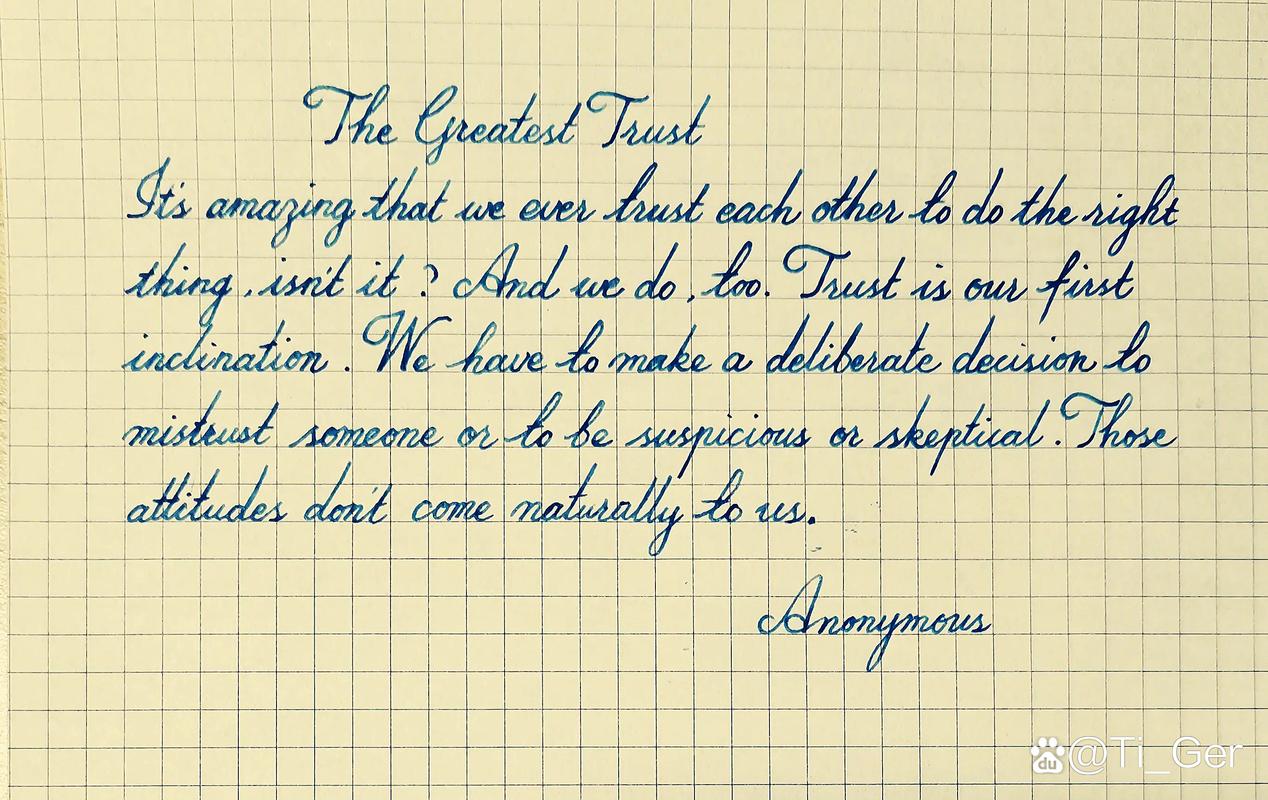 The Greatest Trust
It's amazing that we ever trust each other to do the right
thing, isn't it? And we do, too. Trust is our first
inclination. We have to make a deliberate decision to
mistrust someone or to be suspicious or skeptical. Those
attitudes don't come naturally to us.
Anonymous
du @Ti_Ger